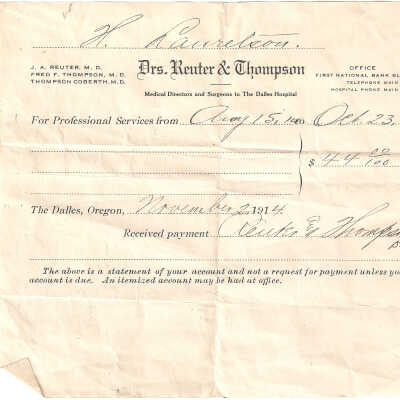 H. Laurelson.
J. A. REUTER, M. D.
FRED F. THOMPSON, M. D.
THOMPSON COBERTH, M. D.
Drs. Reuter & Thompson
Medical Directors and Surgeons to The Dalles Hospital
OFFICE
FIRST NATIONAL BANK BL
TELEPHONE MAIN
HOSPITAL PHONE MAIN
For Professional Services from Aug 15, to Oct. 23,
$ 44 00/100
The Dalles, Oregon, November 2, 1914.
Received payment Reuter & Thomps
The above is a statement of your account and not a request for payment unless you
account is due. An itemized account may be had at office.